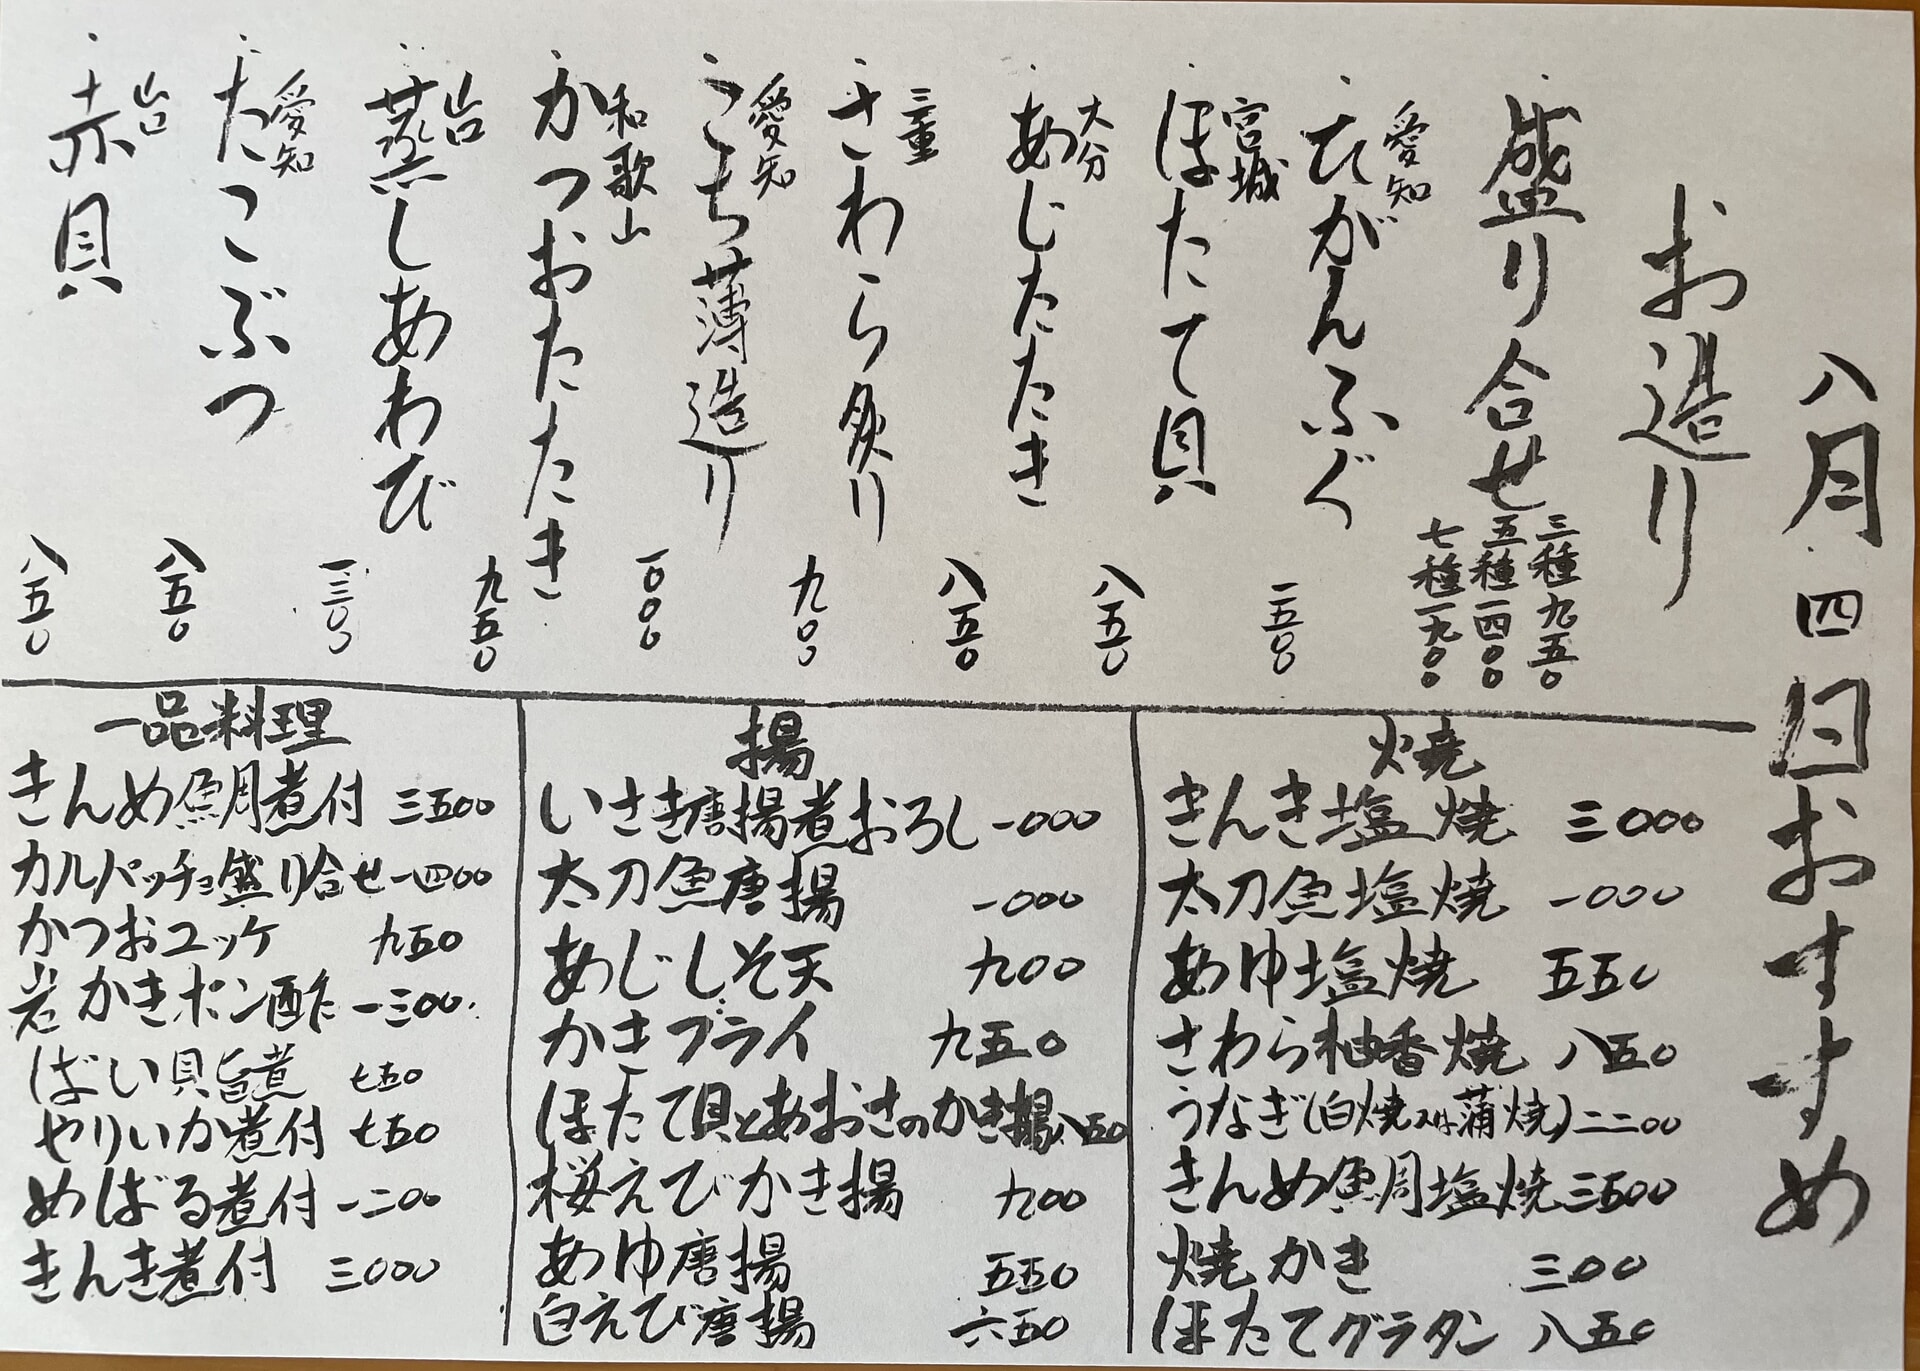 八月四日おすすめ
お造り
・盛り合せ
三種九五〇
五種一四〇〇
七種一九〇〇
愛知
・ひがんふぐ 一五〇〇
宮城
・ほたて貝 八五〇
大分
・あじたたき 八五〇
三重
・さわら炙り 九〇〇
愛知
・こち薄造り 一〇〇〇
和歌山
・かつおたたき 九五〇
・蒸しあわび 一三〇〇
愛知
・たこぶつ 八五〇
・赤貝 八五〇
焼
きんき塩焼 三000
太刀魚塩焼 一000
あゆ塩焼 五五0
さわら柚香焼 八五0
うなぎ(白焼又は蒲焼)二二00
きんめ鯛塩焼 三五00
焼かき 三00
ほたてグラタン 八五0
揚
いさき唐揚煮おろし 一000
太刀魚唐揚 一000
あじしそ天 九00
かきフライ 九五0
ほたて貝とあおさのかき揚八五0
桜えびかき揚 九00
あゆ唐揚 五五0
白えび唐揚 六五0
一品料理
きんめ鯛煮付 三五00
カルパッチョ盛り合せ 一四00
かつおユッケ 九五0
岩かきポン酢 一三00
ばい貝旨煮 七五0
やりいか煮付 七五0
めばる煮付 一二00
きんき煮付 三000